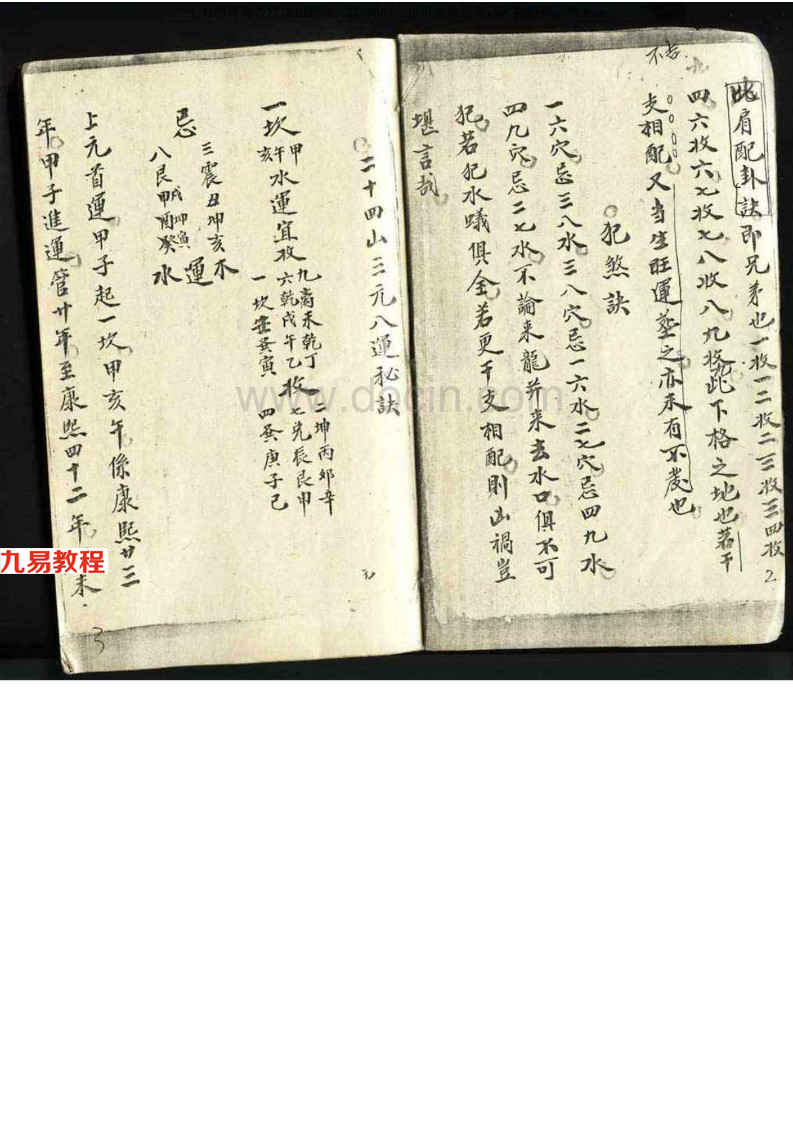 比肩配卦訣即兄弟也一收一二收二三收三四收
四六收六七收七八收八九收此下格之地也若干
支相配又当生旺運塟之亦未有不發也
犯煞訣
一六穴忌三八水三八穴忌一六水二七穴忌四九水
四九穴忌二七水不論來龍并来去水口俱不可
犯若犯水蟻俱全若更干支相配則凶禍豈
堪言哉
2
不吉
二十四山三元八運秘訣
一坎甲午亥水運宜收
九离未乾丁
六乾戌午乙
一坎壬癸寅
收
二坤丙卯辛
七兌辰艮甲
四巽庚子己
忌
三震丑坤亥木
八艮甲酉癸水
運
上元首運甲子起一坎甲亥午係康熙廿三
年甲子進運管廿年至康熙四十二年 未
3
www.docin.com
九易教程